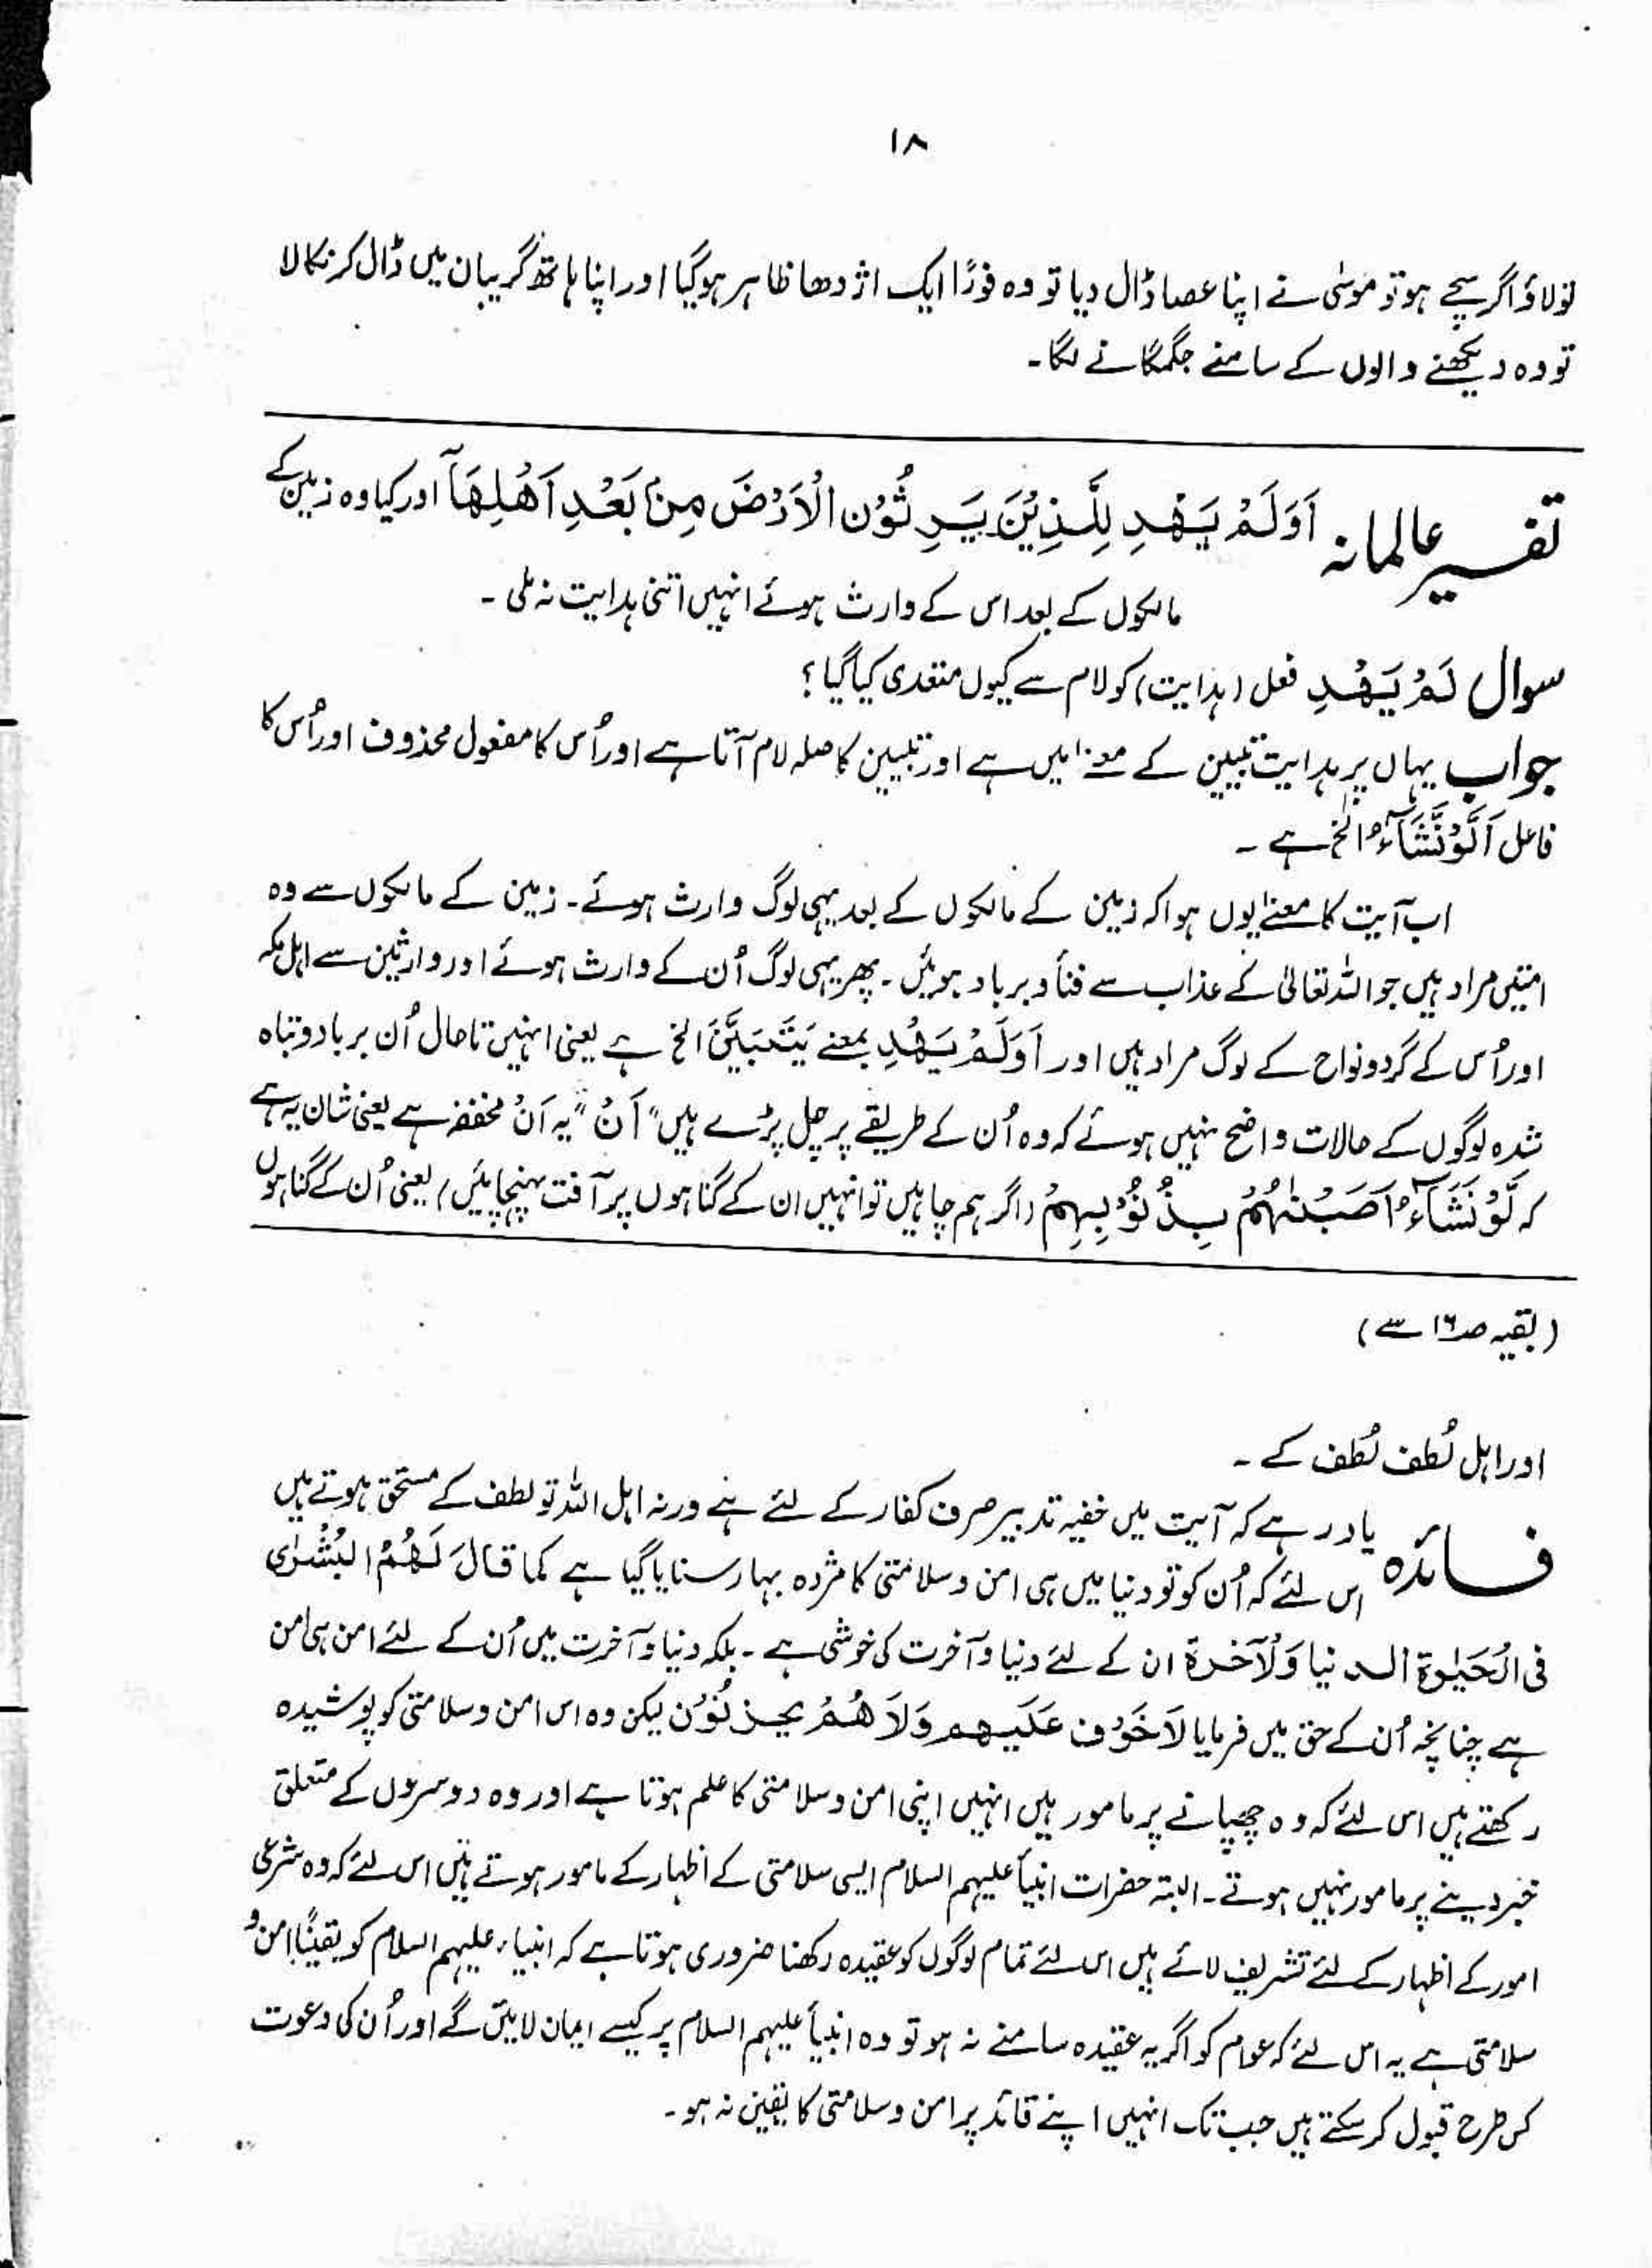 ۱۸
تولاؤ اگر سچے ہو تو موسٰی نے اپنا عصا ڈال دیا تو وہ فورًا ایک اژدھا ظاہر ہوگیا اور اپنا ہاتھ گریبان میں ڈال کر نکالا
تو وہ دیکھنے والوں کے سامنے جگمگانے لگا۔
تفسیر عالمانہ اَوَلَمْ یَھْدِ لِلَّذِیْنَ یَرِثُوْنَ الْاَرْضَ مِنْ بَعْدِ اَھْلِھَآ اور کیا وہ زمین کے
مالکوں کے بعد اس کے وارث ہوئے انہیں اتنی ہدایت نہ ملی ۔
سوال لَمْ یَھْدِ فعل (ہدایت) کو لام سے کیوں متعدی کیا گیا ؟
جواب یہاں پر ہدایت تبیین کے معنٰے میں ہے اور تبیین کا صلہ لام آتا ہے اور اُس کا مفعول محذوف اور اُس کا
فاعل اَلَّوْ نَشَآءُ الخ ہے ۔
اب آیت کا معنٰے یوں ہوا کہ زمین کے مالکوں کے بعد یہی لوگ وارث ہوئے۔ زمین کے مالکوں سے وہ
امتیں مراد ہیں جو اللہ تعالٰی کے عذاب سے فنأ و برباد ہوئیں ۔ پھر یہی لوگ اُن کے وارث ہوئے اور وارثین سے اہل مکہ
اور اُس کے گرد و نواح کے لوگ مراد ہیں اور اَوَلَمْ یَھْدِ بمعنے یَتَبَیَّنَ الخ ہے یعنی انہیں تاحال اُن برباد و تباہ
شدہ لوگوں کے حالات واضح نہیں ہوئے کہ وہ اُن کے طریقے پر چل پڑے ہیں "اَنْ" یہ اَنْ مخففہ ہے یعنی شان یہ ہے
کہ لَّوْ نَشَآءُ اَصَبْنٰہُمْ بِذُنُوْبِہِمْ (اگر ہم چاہیں تو انہیں ان کے گناہوں پر آفت پہنچائیں) یعنی اُن کے گناہوں
(بقیہ صـ۱۶ سے)
اور اہل لُطف لُطف کے ۔
فائدہ یاد رہے کہ آیت میں خفیہ تدبیر صرف کفار کے لئے ہے ورنہ اہل اللہ تو لطف کے مستحق ہوتے ہیں
اس لئے کہ اُن کو تو دنیا میں ہی امن و سلامتی کا مژدہ بہار سنایا گیا ہے کما قالَ لَھُمُ البُشْرٰی
فی الْحَیٰوۃ الدنیا وَلْآخرۃ ان کے لئے دنیا و آخرت کی خوشی ہے ۔ بلکہ دنیا و آخرت میں اُن کے لئے امن ہی امن
ہے چنانچہ اُن کے حق میں فرمایا لَاخَوْف عَلَیھم وَلَا ھُمْ یحزنُوْن لیکن وہ اس امن و سلامتی کو پوشیدہ
رکھتے ہیں اس لئے کہ وہ چھپانے پر مامور ہیں انہیں اپنی امن و سلامتی کا علم ہوتا ہے اور وہ دوسروں کے متعلق
خبر دینے پر مامور نہیں ہوتے ۔ البتہ حضرات انبیأ علیہم السلام ایسی سلامتی کے اظہار کے مامور ہوتے ہیں اس لئے کہ وہ شرعی
امور کے اظہار کے لئے تشریف لائے ہیں اس لئے تمام لوگوں کو عقیدہ رکھنا ضروری ہوتا ہے کہ انبیاء علیہم السلام کو یقینًا امن و
سلامتی ہے یہ اس لئے کہ عوام کو اگر یہ عقیدہ سامنے نہ ہو تو وہ انبیأ علیہم السلام پر کیسے ایمان لائیں گے اور اُن کی دعوت
کس طرح قبول کر سکتے ہیں جب تک انہیں اپنے قائد پر امن و سلامتی کا یقین نہ ہو۔